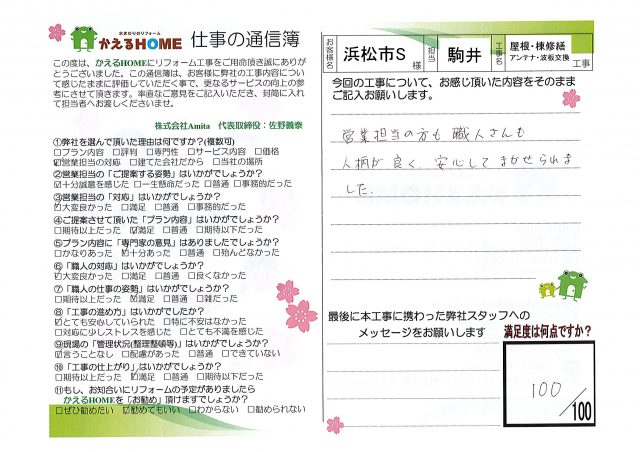 水まわりのリフォーム
かえるHOME 仕事の通信簿
この度は、かえるHOMEにリフォーム工事をご用命頂き誠にありが
とうございました。この通信簿は、お客様に弊社の工事内容につい
て感じたままに評価していただく事で、更なるサービスの向上の参
考にさせて頂きます。率直なご意見をご記入いただき、封筒に入れ
て担当者へお渡しくださいませ。
株式会社Amita 代表取締役：佐野義泰
①弊社を選んで頂いた理由は何ですか？(複数可)
□プラン内容 □評判 □専門性 □サービス内容 □価格
☑営業担当の対応 □建てた会社だから □当社の場所
②営業担当の「ご提案する姿勢」はいかがでしょうか？
☑十分誠意を感じた □一生懸命だった □普通 □事務的だった
③営業担当の「対応」はいかがでしょうか？
☑大変良かった □満足 □普通 □事務的だった
④ご提案させて頂いた「プラン内容」はいかがでしょうか？
□期待以上だった ☑満足 □普通 □期待以下だった
⑤プラン内容に「専門家の意見」はありましたでしょうか？
□かなりあった ☑十分あった □普通 □殆んどなかった
⑥「職人の対応」はいかがでしょうか？
☑大変良かった □満足 □普通 □良くなかった
⑦「職人の仕事の姿勢」はいかがでしょうか？
□期待以上だった ☑満足 □普通 □雑だった
⑧「工事の進め方」はいかがでしたか？
☑とても安心していられた □特に不安はなかった
□対応に少しストレスを感じた □とても不満を感じた
⑨現場の「管理状況(整理整頓等)」はいかがでしょうか？
☑言うことなし □配慮があった □できていない
⑩「工事の仕上がり」はいかがでしょうか？
□期待以上だった ☑満足 □普通 □期待以下だった
⑪もし、お知合いにリフォームの予定がありましたら
かえるHOMEを「お勧め」頂けますでしょうか？
□ぜひ勧めたい ☑勧めてもいい □わからない □勧められない
お客様名 浜松市S 様 担当 駒井 工事名 屋根・棟修繕 アンテナ・波板交換 工事
今回の工事について、お感じ頂いた内容をそのまま
ご記入お願いします。
営業担当の方も職人さんも
人柄が良く、安心してまかせられま
した.
最後に本工事に携わった弊社スタッフへの
メッセージをお願いします
満足度は何点ですか？
100/100